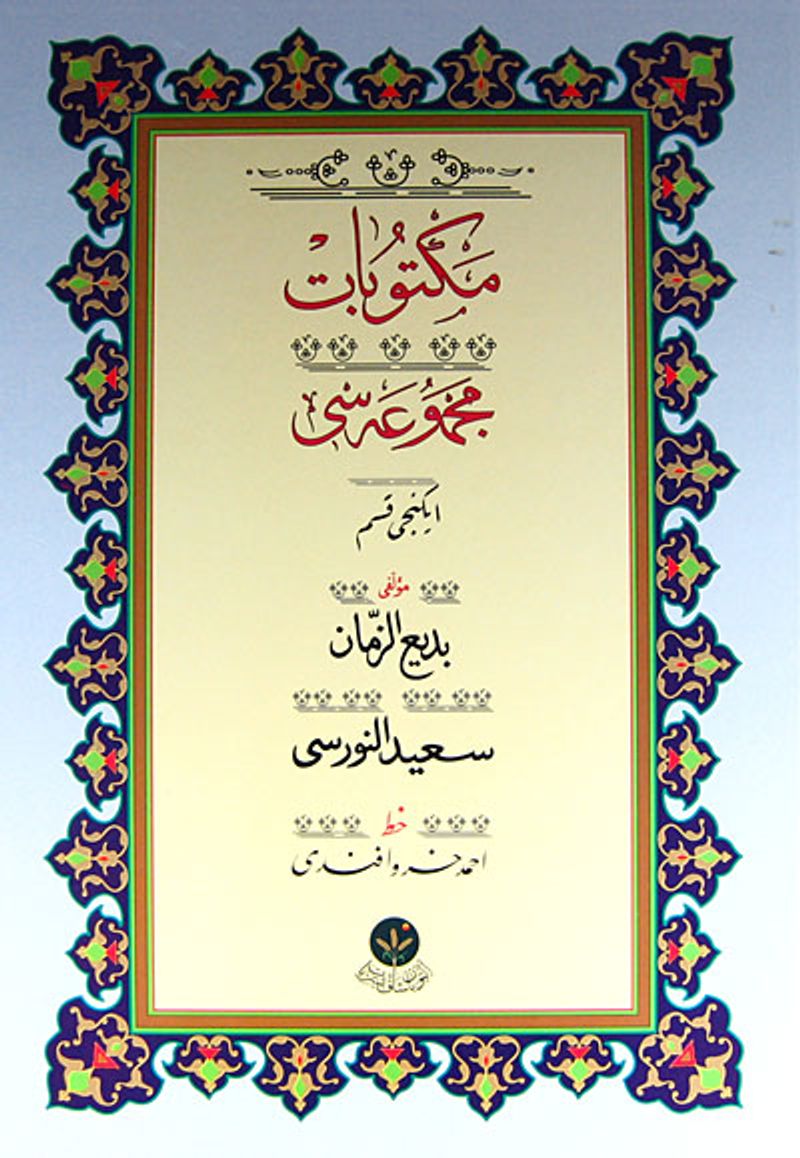 مكتوُبات
مجموُعَه سی
ایكنجی قسم
مؤلّفی
بدیع الزمّان
سعید النورسی
خط
احمد خسرو افندی